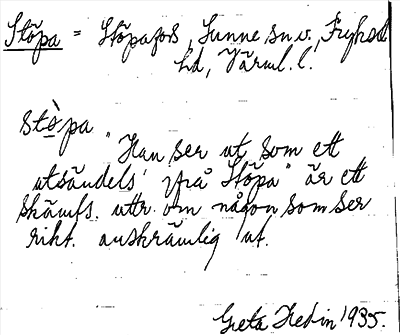 Stöpa = Stöpafors, Sunne sn v., Fryksd
hd, Värml. l.
stò̱pa
"Han ser ut som ett
utsändels' ifrå Stöpa" är ett
skämts. uttr. om någon som ser
rikt. anskrämlig ut.
Greta Hedin 1935.